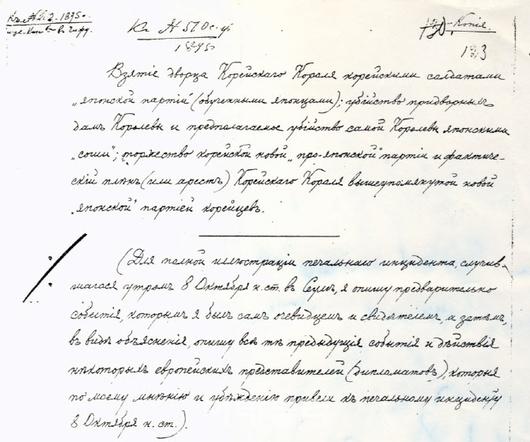 Къ № 2. 1895 г.
Къ № 510 с. g.
1895
Копіе.
123
Взятіе дворца Корейскаго Короля корейскими солдатами
„японской партіи (обученными японцами); убійство придворныхъ
дамъ Королевы и предполагаемое убійство самой Королевы японскими
„соши“; торжество корейской новой „про-японской“ партіи и фактиче-
скій плѣнъ (или арестъ) Корейскаго Короля вышеупомянутой новой
„японской“ партіей корейцевъ.
(Для полной иллюстраціи печальнаго инцидента, случив-
шагося утромъ 8 Октября н. ст. въ Сеулѣ, я опишу предварительно
событія, которымъ я былъ самъ очевидцемъ и свидѣтелемъ, и затѣмъ,
въ видѣ объясненія, опишу всѣ тѣ предыдущія событія и дѣйствія
нѣкоторыхъ европейскихъ представителей (дипломатовъ), которыя
по моему мнѣнію и убѣжденію привели къ печальному инциденту
8 Октября н. ст.).